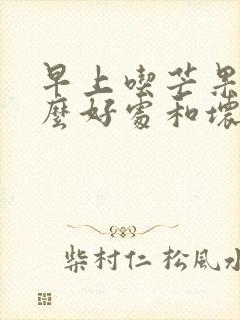 早上喫芒果
麼好處和壞
柴村仁 松風水